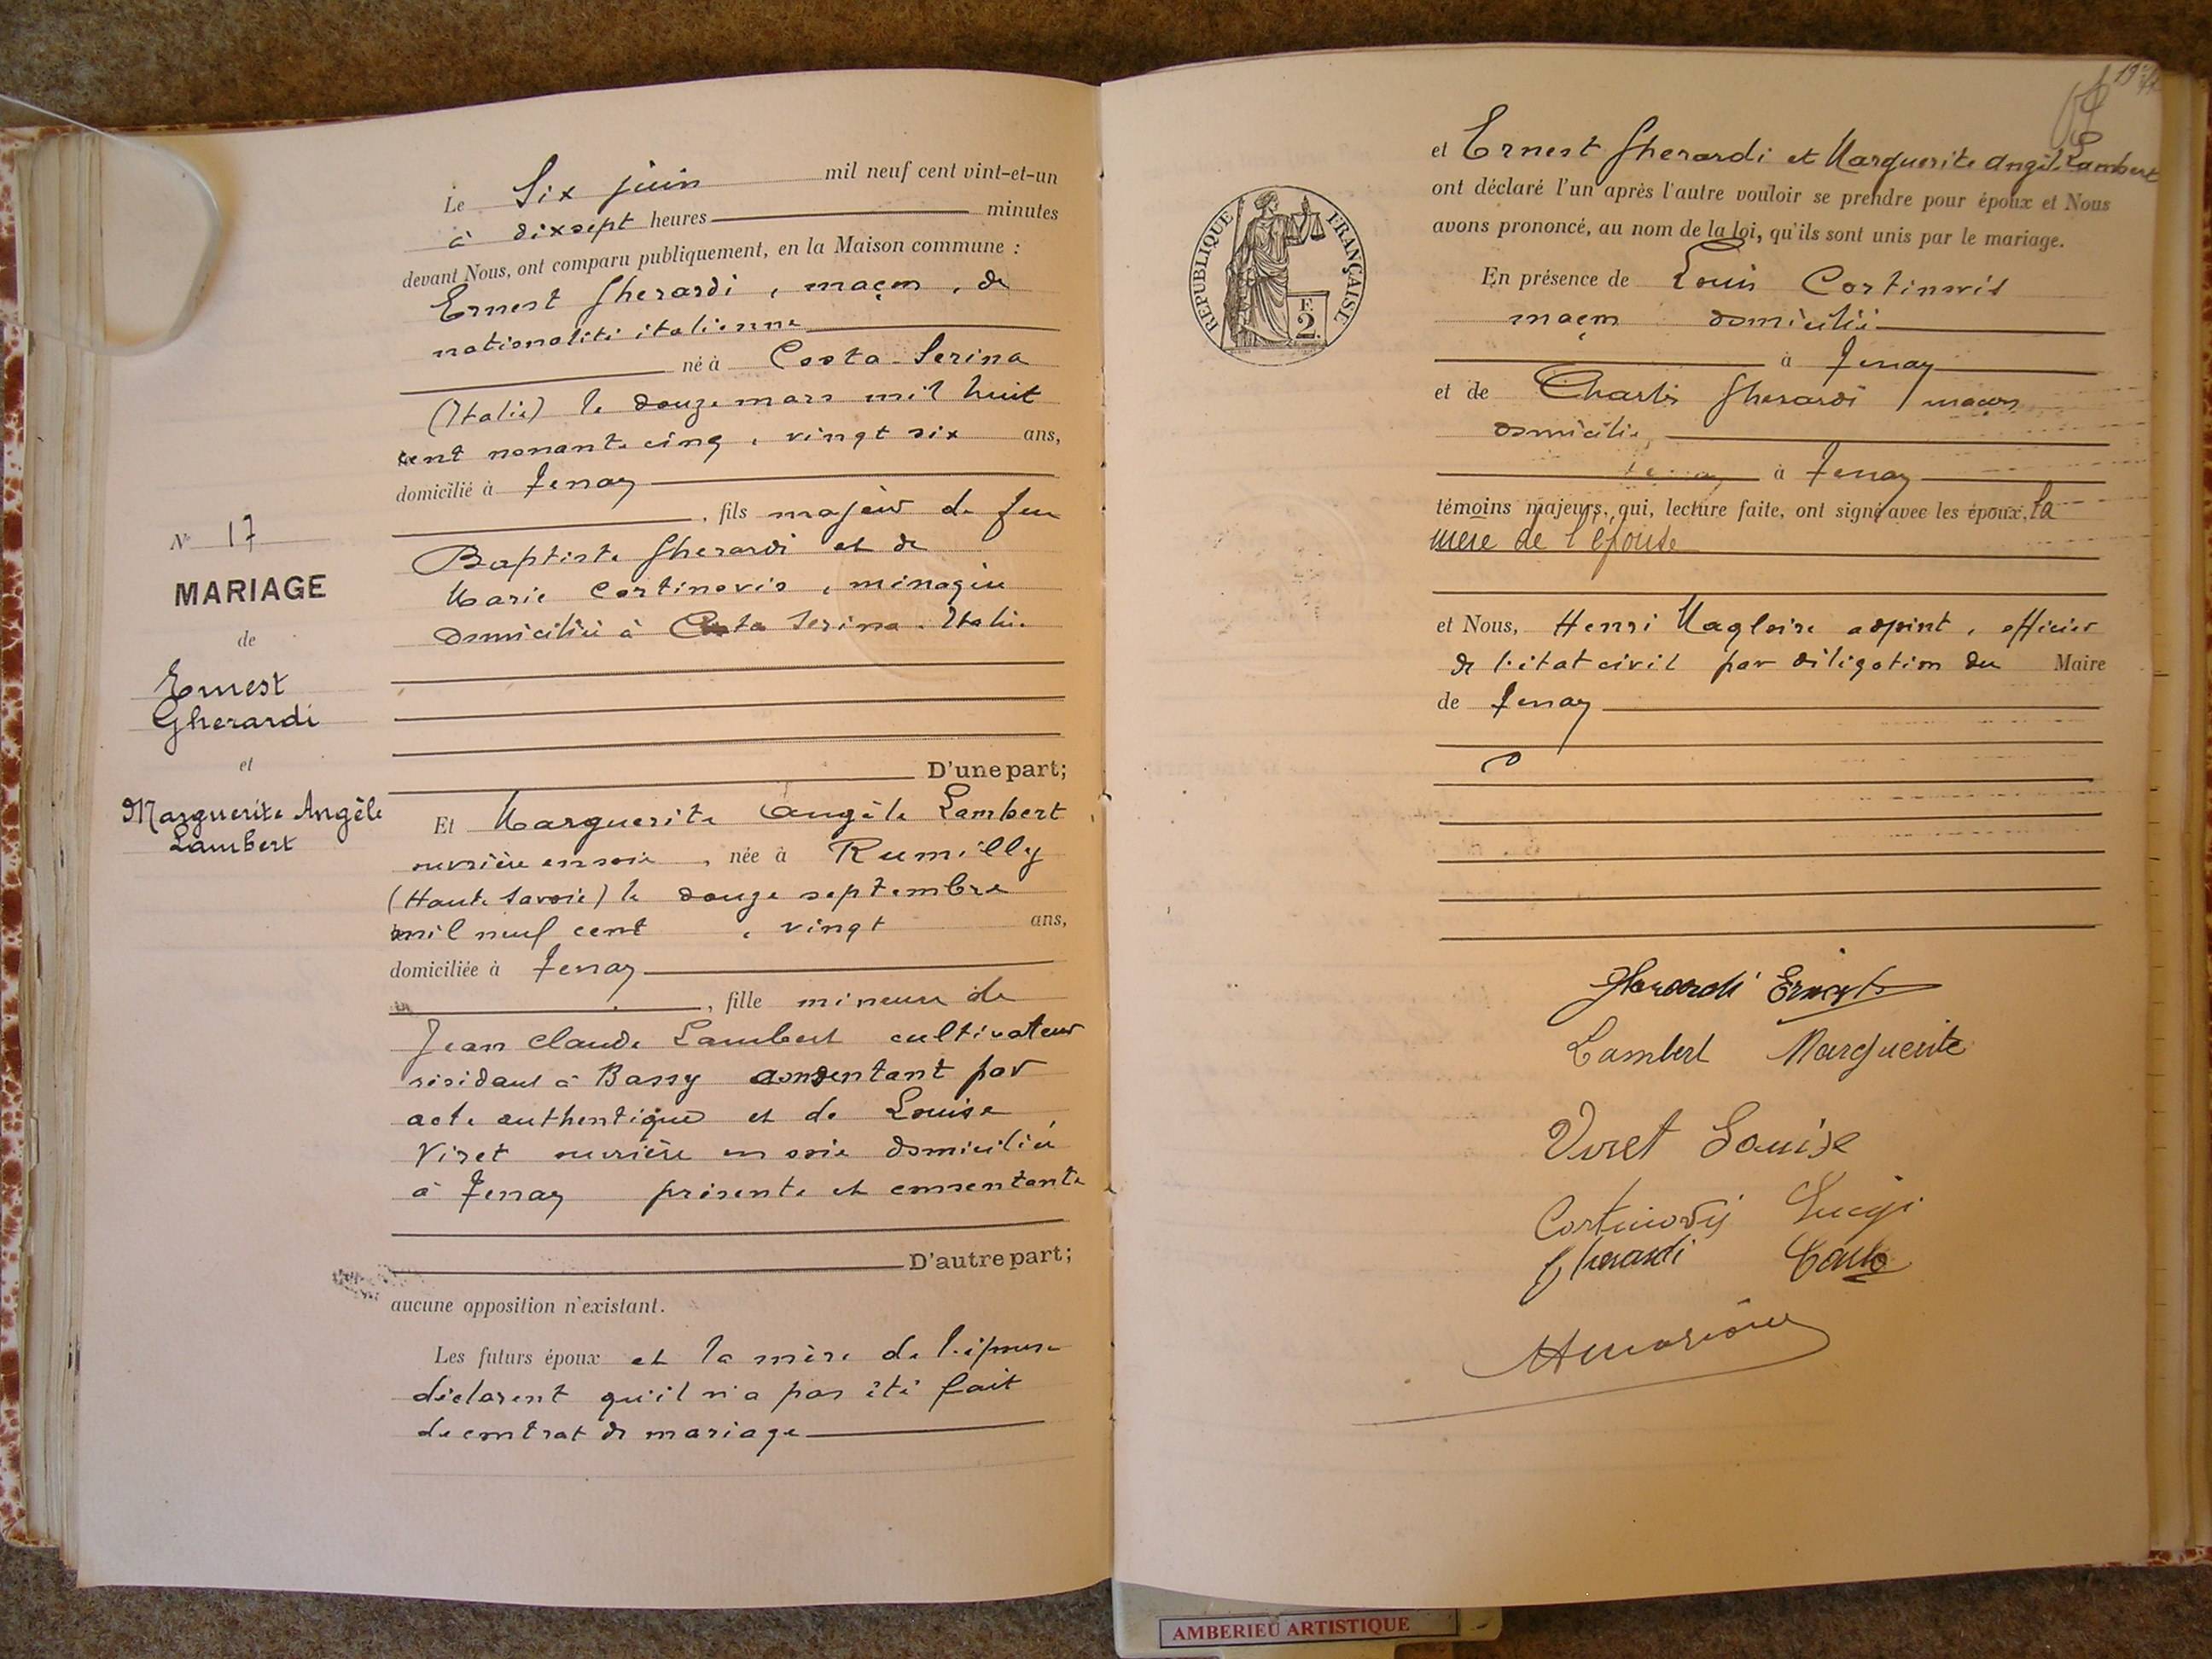 Le Six juin mil neuf cent vint-et-un
à dixsept heures minutes
devant Nous, ont comparu publiquement, en la Maison commune :
Ernest Gherardi, maçon, de
nationalité italienne
né à Costa Serina
(Italie) le douze mars mil huit
cent nonante cinq, vingt six ans,
domicilié à Tenay
, fils majeur de feu
Baptiste Gherardi et de
Marie Cortinovis, ménagère
domiciliée à Costa Serina. Italie
D'une part;
N° 17
MARIAGE
de
Ernest
Gherardi
et
Marguerite Angèle
Lambert
Et Marguerite Angèle Lambert
ouvrière en soie, née à Rumilly
(Haute Savoie) le douze septembre
mil neuf cent, vingt ans,
domiciliée à Tenay
, fille mineure de
Jean Claude Lambert cultivateur
résidant à Bassy consentant par
acte authentique et de Louise
Viret ouvrière en soie domiciliée
à Tenay présente et consentante
D'autre part;
aucune opposition n'existant.
Les futurs époux et la mère de l'épouse
déclarent qu'il n'a pas été fait
de contrat de mariage
et Ernest Gherardi et Marguerite Angèle Lambert
ont déclaré l'un après l'autre vouloir se prendre pour époux et Nous
avons prononcé, au nom de la loi, qu'ils sont unis par le mariage.
REPUBLIQUE FRANÇAISE
F.
2.
En présence de Louis Cortinovis
maçon domicilié
à Tenay
et de Charles Gherardi, maçon
domicilié
à Tenay
témoins majeurs, qui, lecture faite, ont signé avec les époux, la
mère de l'épouse
et Nous, Henri Magloire adjoint, officier
de l'état civil par délégation du Maire
de Tenay
Gherardi Ernest
Lambert Marguerite
Viret Louise
Cortinovis Luigi
Gherardi Carlo
AMBERIEU ARTISTIQUE